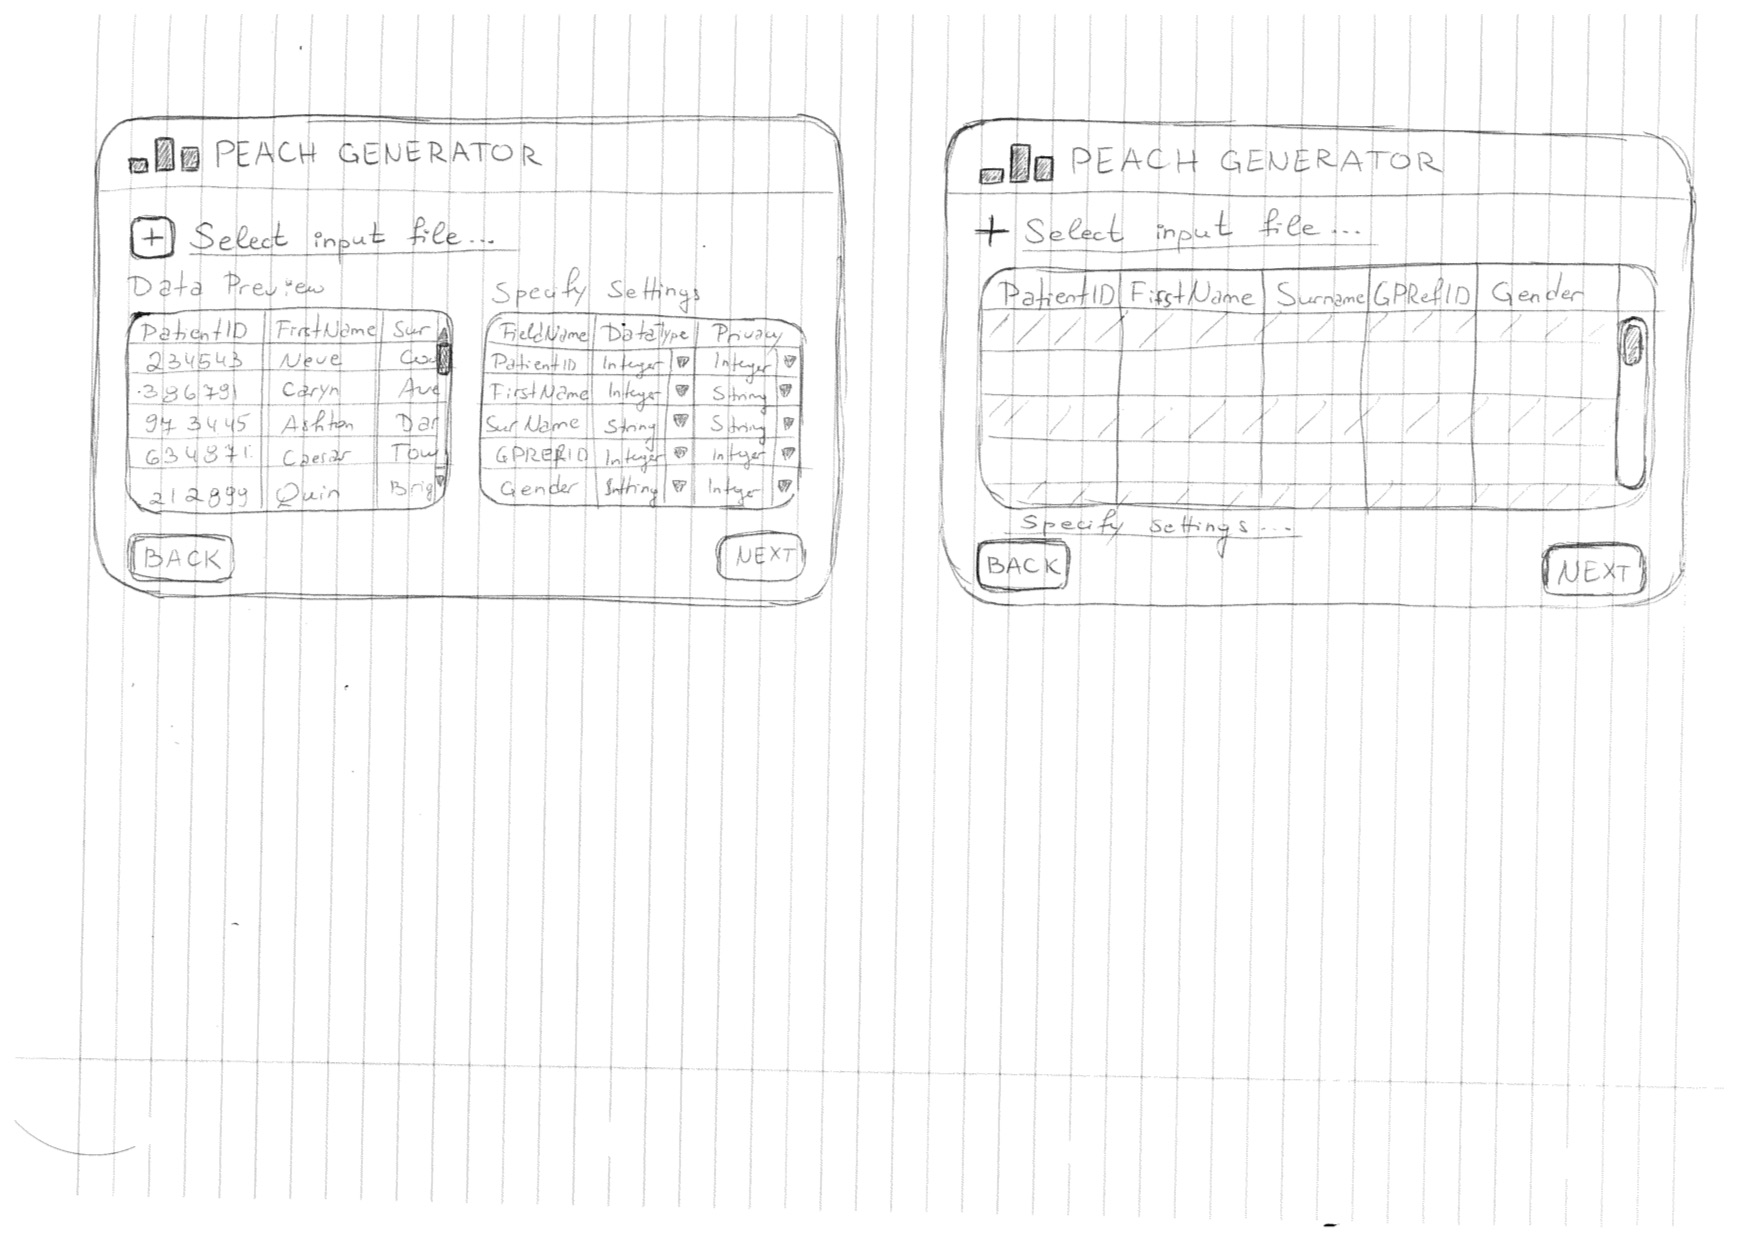 PEACH GENERATOR
+ Select input file...
Data Preview
PatientID FirstName Sur
234543 Neve
386791 Caryn Ave
973445 Ashton Dar
634871 Caesar Tow
212899 Quin Brig
Specify Settings
FieldName DataType Privacy
PatientID Integer Integer
FirstName Integer String
SurName String String
GPRERID Integer Integer
Gender Integer
BACK
NEXT
PEACH GENERATOR
+ Select input file...
PatientID FirstName Surname GPRefID Gender
Specify settings...
BACK
NEXT